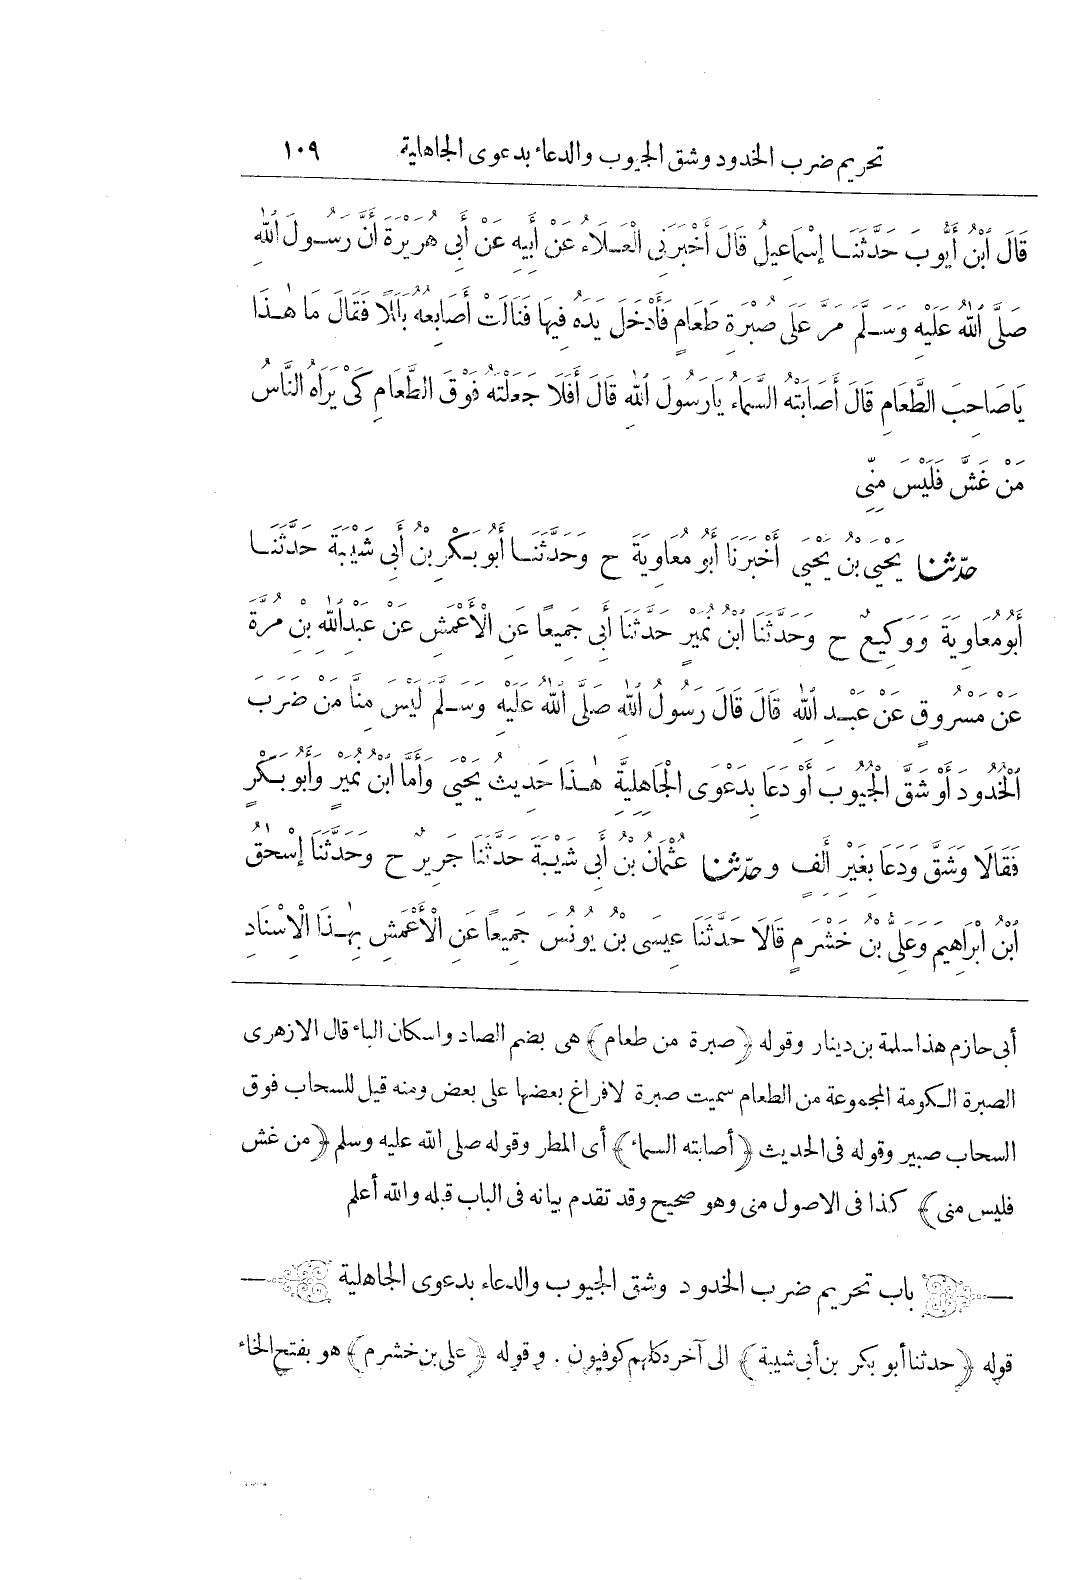 تحريم ضرب الخدود وشق الجيوب والدعاء بدعوى الجاهلية ١٠٩
قَالَ ٱبْنُ أَيُّوبَ حَدَّثَنَا إِسْمَاعِيلُ قَالَ أَخْبَرَنِى الْعَلَاءُ عَنْ أَبِيهِ عَنْ أَبِى هُرَيْرَةَ أَنَّ رَسُولَ ٱللّٰهِ
صَلَّى ٱللّٰهُ عَلَيْهِ وَسَلَّمَ مَرَّ عَلَى صُبْرَةِ طَعَامٍ فَأَدْخَلَ يَدَهُ فِيهَا فَنَالَتْ أَصَابِعُهُ بَلَلًا فَقَالَ مَا هٰذَا
يَاصَاحِبَ الطَّعَامِ قَالَ أَصَابَتْهُ السَّمَاءُ يَارَسُولَ ٱللّٰهِ قَالَ أَفَلَا جَعَلْتَهُ فَوْقَ الطَّعَامِ كَىْ يَرَاهُ النَّاسُ
مَنْ غَشَّ فَلَيْسَ مِنِّى
حدّثنا يَحْيَى بْنُ يَحْيَى أَخْبَرَنَا أَبُو مُعَاوِيَةَ ح وَحَدَّثَنَا أَبُو بَكْرِ بْنُ أَبِى شَيْبَةَ حَدَّثَنَا
أَبُو مُعَاوِيَةَ وَوَكِيعٌ ح وَحَدَّثَنَا ٱبْنُ نُمَيْرٍ حَدَّثَنَا أَبِى جَمِيعًا عَنِ الْأَعْمَشِ عَنْ عَبْدِ ٱللّٰهِ بْنِ مُرَّةَ
عَنْ مَسْرُوقٍ عَنْ عَبْدِ ٱللّٰهِ قَالَ قَالَ رَسُولُ ٱللّٰهِ صَلَّى ٱللّٰهُ عَلَيْهِ وَسَلَّمَ لَيْسَ مِنَّا مَنْ ضَرَبَ
ٱلْخُدُودَ أَوْ شَقَّ الْجُيُوبَ أَوْ دَعَا بِدَعْوَى الْجَاهِلِيَّةِ هٰذَا حَدِيثُ يَحْيَى وَأَمَّا ٱبْنُ نُمَيْرٍ وَأَبُو بَكْرٍ
فَقَالَا وَشَقَّ وَدَعَا بِغَيْرِ أَلِفٍ وحدّثنا عُثْمَانُ بْنُ أَبِى شَيْبَةَ حَدَّثَنَا جَرِيرٌ ح وَحَدَّثَنَا إِسْحٰقُ
ٱبْنُ إِبْرَاهِيمَ وَعَلِىُّ بْنُ خَشْرَمٍ قَالَا حَدَّثَنَا عِيسَى بْنُ يُونُسَ جَمِيعًا عَنِ الْأَعْمَشِ بِهٰذَا الْإِسْنَادِ
أبى حازم هذا سلمة بن دينار وقوله ﴿صبرة من طعام﴾ هى بضم الصاد واسكان الباء قال الازهرى
الصبرة الكومة المجموعة من الطعام سميت صبرة لافراغ بعضها على بعض ومنه قيل للسحاب فوق
السحاب صبير وقوله فى الحديث ﴿أصابته السماء﴾ أى المطر وقوله صلى الله عليه وسلم ﴿من غش
فليس منى﴾ كذا فى الاصول منى وهو صحيح وقد تقدم بيانه فى الباب قبله والله أعلم
باب تحريم ضرب الخدود وشق الجيوب والدعاء بدعوى الجاهلية
قوله ﴿حدثنا أبو بكر بن أبى شيبة﴾ الى آخره كلهم كوفيون . وقوله ﴿على بن خشرم﴾ هو بفتح الخاء